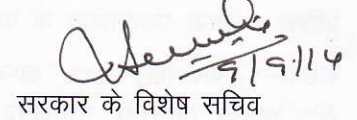 9/9/14
सरकार के विशेष सचिव